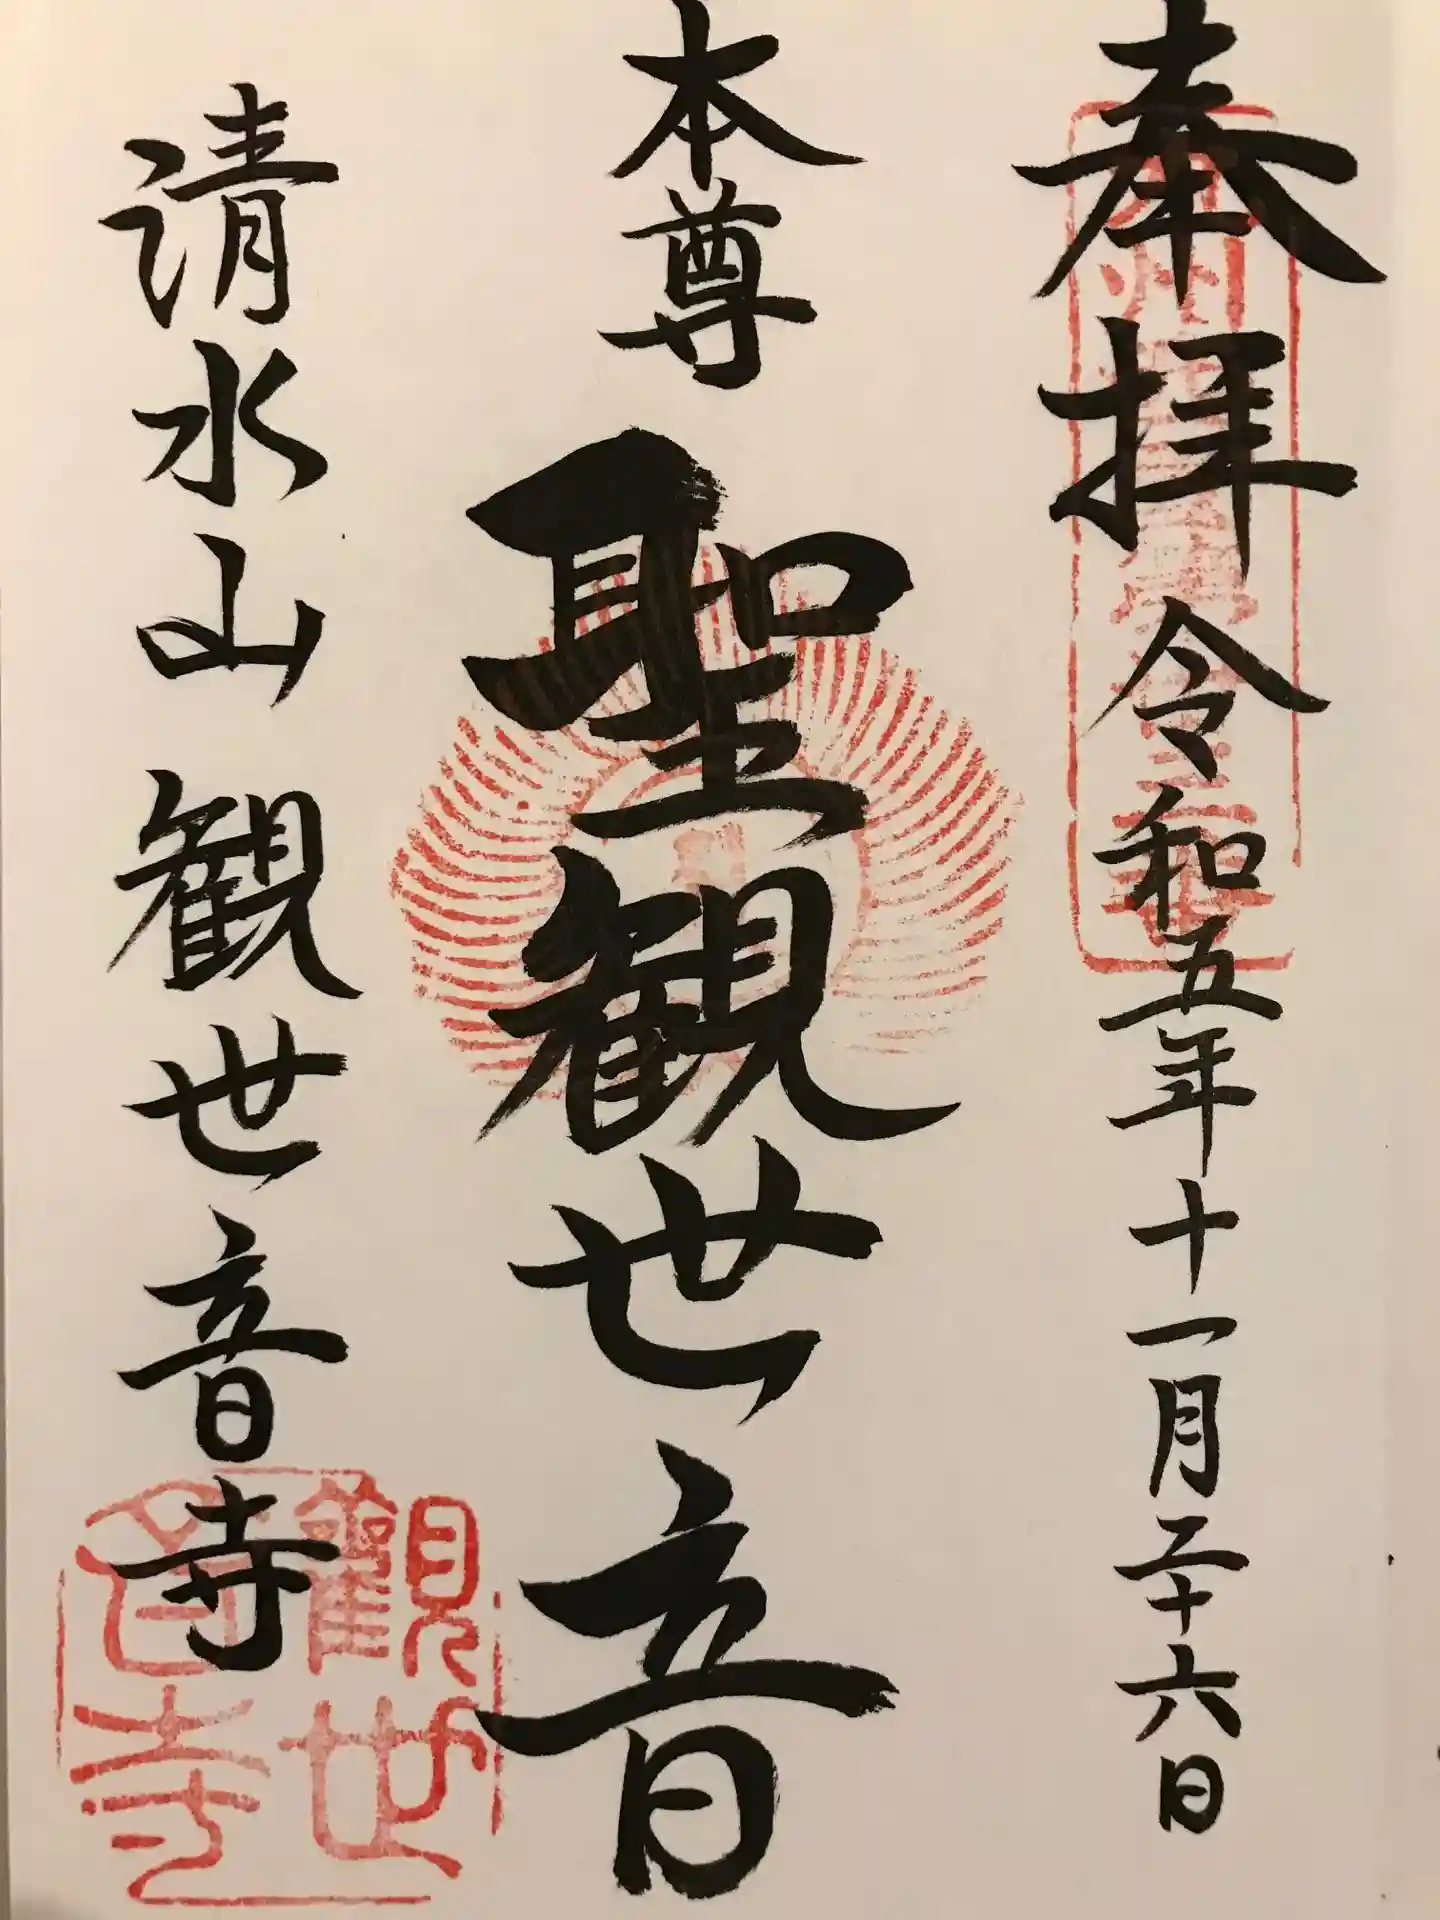 奉拝 令和五年十一月二十六日
本尊 聖観世音
清水山観世音寺
觀世音寺